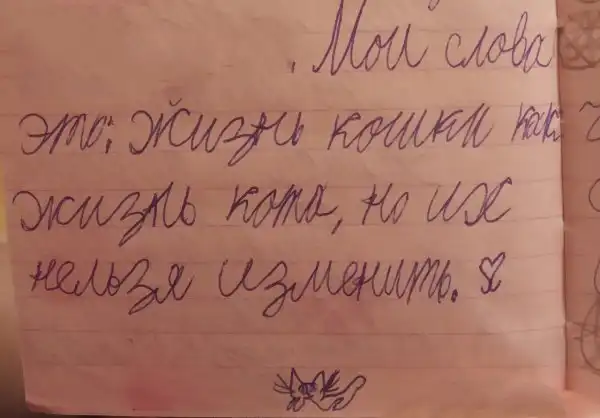 Мои слова
это: Жизнь кошки как
жизнь кота, но их
нельзя изменить.